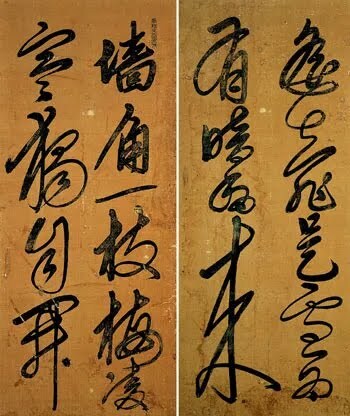 墙角一枝梅凌
寒獨自開
遥知非是雪为
有暗香来